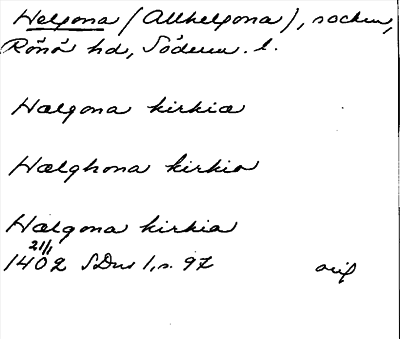 Helgona (Allhelgona), socken,
Rönö hd, Söderm. l.
Hælgona kirkia
Hælghona kirkio
Hælgona kirkia
21/1
1402 SDns 1, s. 97 orig